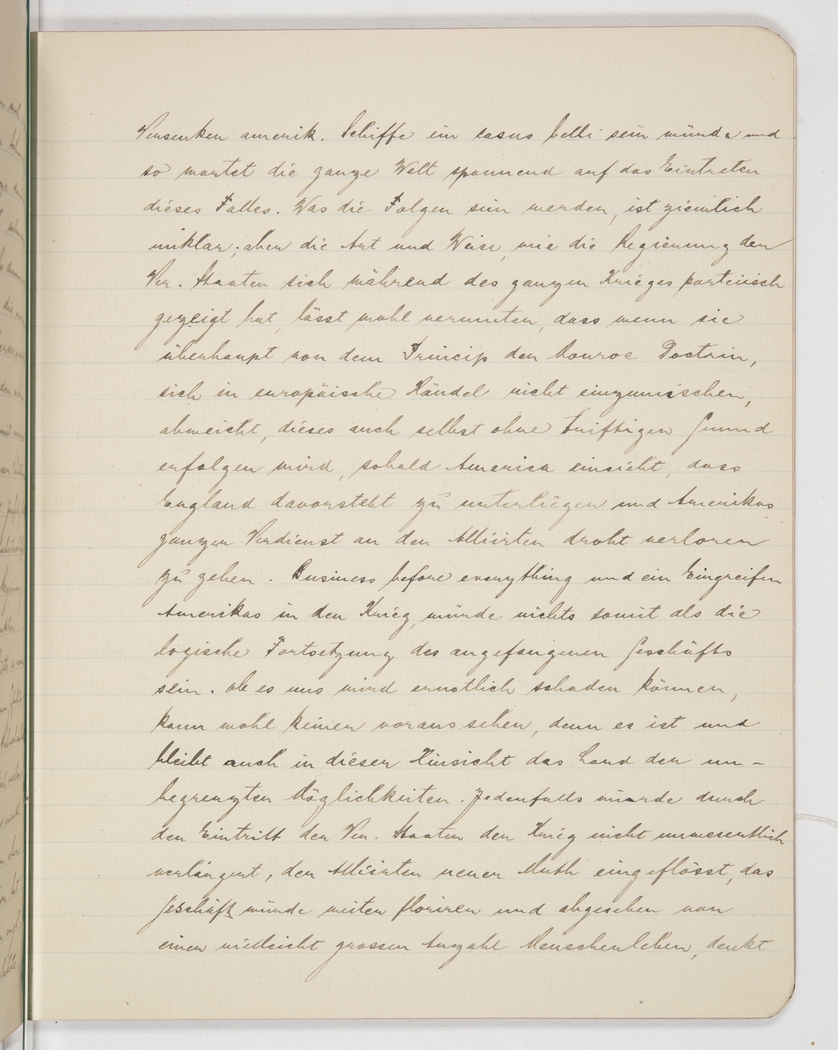 Versenken amerik. Schiffe ein casus belli sein würde und
so wartet die ganze Welt spannend auf das Eintreten
dieses Falles. Was die Folgen sein werden, ist ziemlich
unklar; aber die Art und Weise, wie die Regierung der
Ver. Staaten sich während des ganzen Krieges parteiisch
gezeigt hat, lässt wohl vermuten, dass wenn sie
überhaupt von dem Princip der Monroe Doctrin,
sich in europäische Händel nicht einzumischen,
abweicht, dieses auch selbst ohne triftigen Grund
erfolgen wird, sobald America einsieht, dass
England davorsteht zu unterliegen und Amerikas
ganzer Verdienst an den Alliirten droht verloren
zu gehen. Business before everything und ein Eingreifen
Amerikas in den Krieg, würde nichts somit als die
logische Fortsetzung des angefangenen Geschäfts
sein. Ob es uns wird ernstlich schaden können,
kann wohl keiner voraussehen, denn es ist und
bleibt auch in dieser Hinsicht das Land der un-
begrenzten Möglichkeiten. Jedenfalls würde durch
den Eintritt der Ver. Staaten der Krieg nicht unwesentlich
verlängert, den Alliirten neuer Muth eingeflösst, das
Geschäft würde weiter floriren und abgesehen von
einer vielleicht grossen Anzahl Menschenleben, denkt